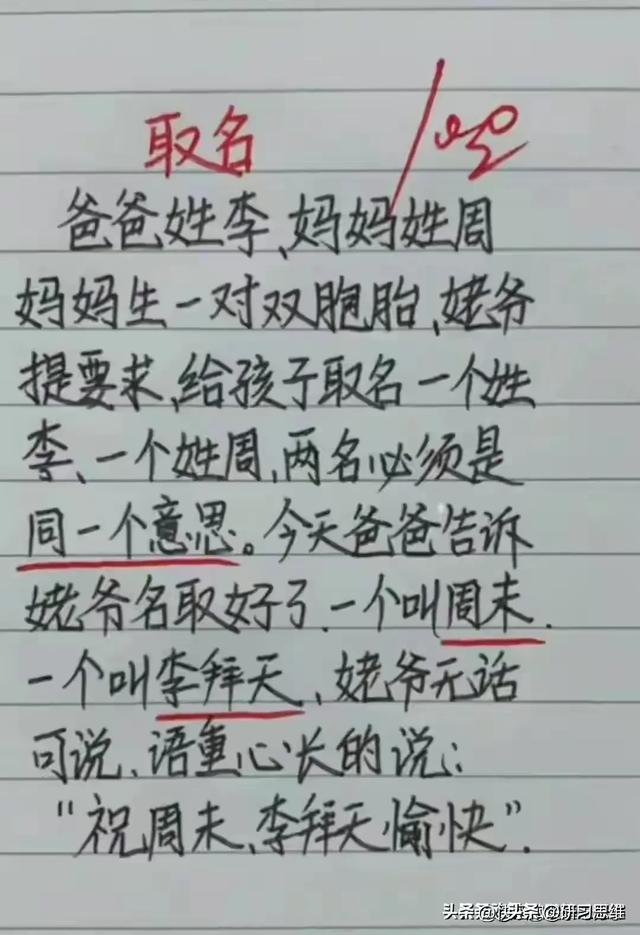 取名
爸爸姓李、妈妈姓周
妈妈生一对双胞胎、姥爷
提要求、给孩子取名一个姓
李、一个姓周,两名必须是
同一个意思。今天爸爸告诉
姥爷名取好了、一个叫周末.
一个叫李拜天、姥爷无话
可说、语重心长的说:
“祝周末、李拜天愉快”.
@研习思维